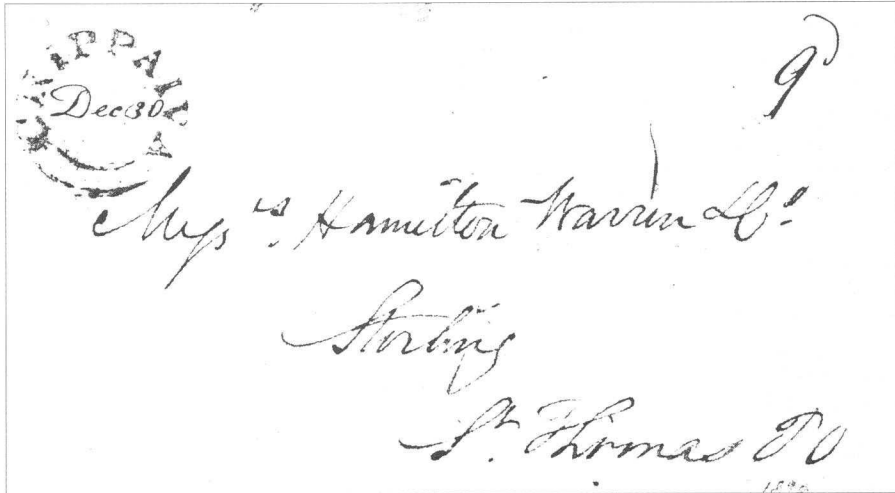 CHIPPAWA
Dec 30
9d
Messrs Hamilton Warren & Co
Sterling
St. Thomas P O